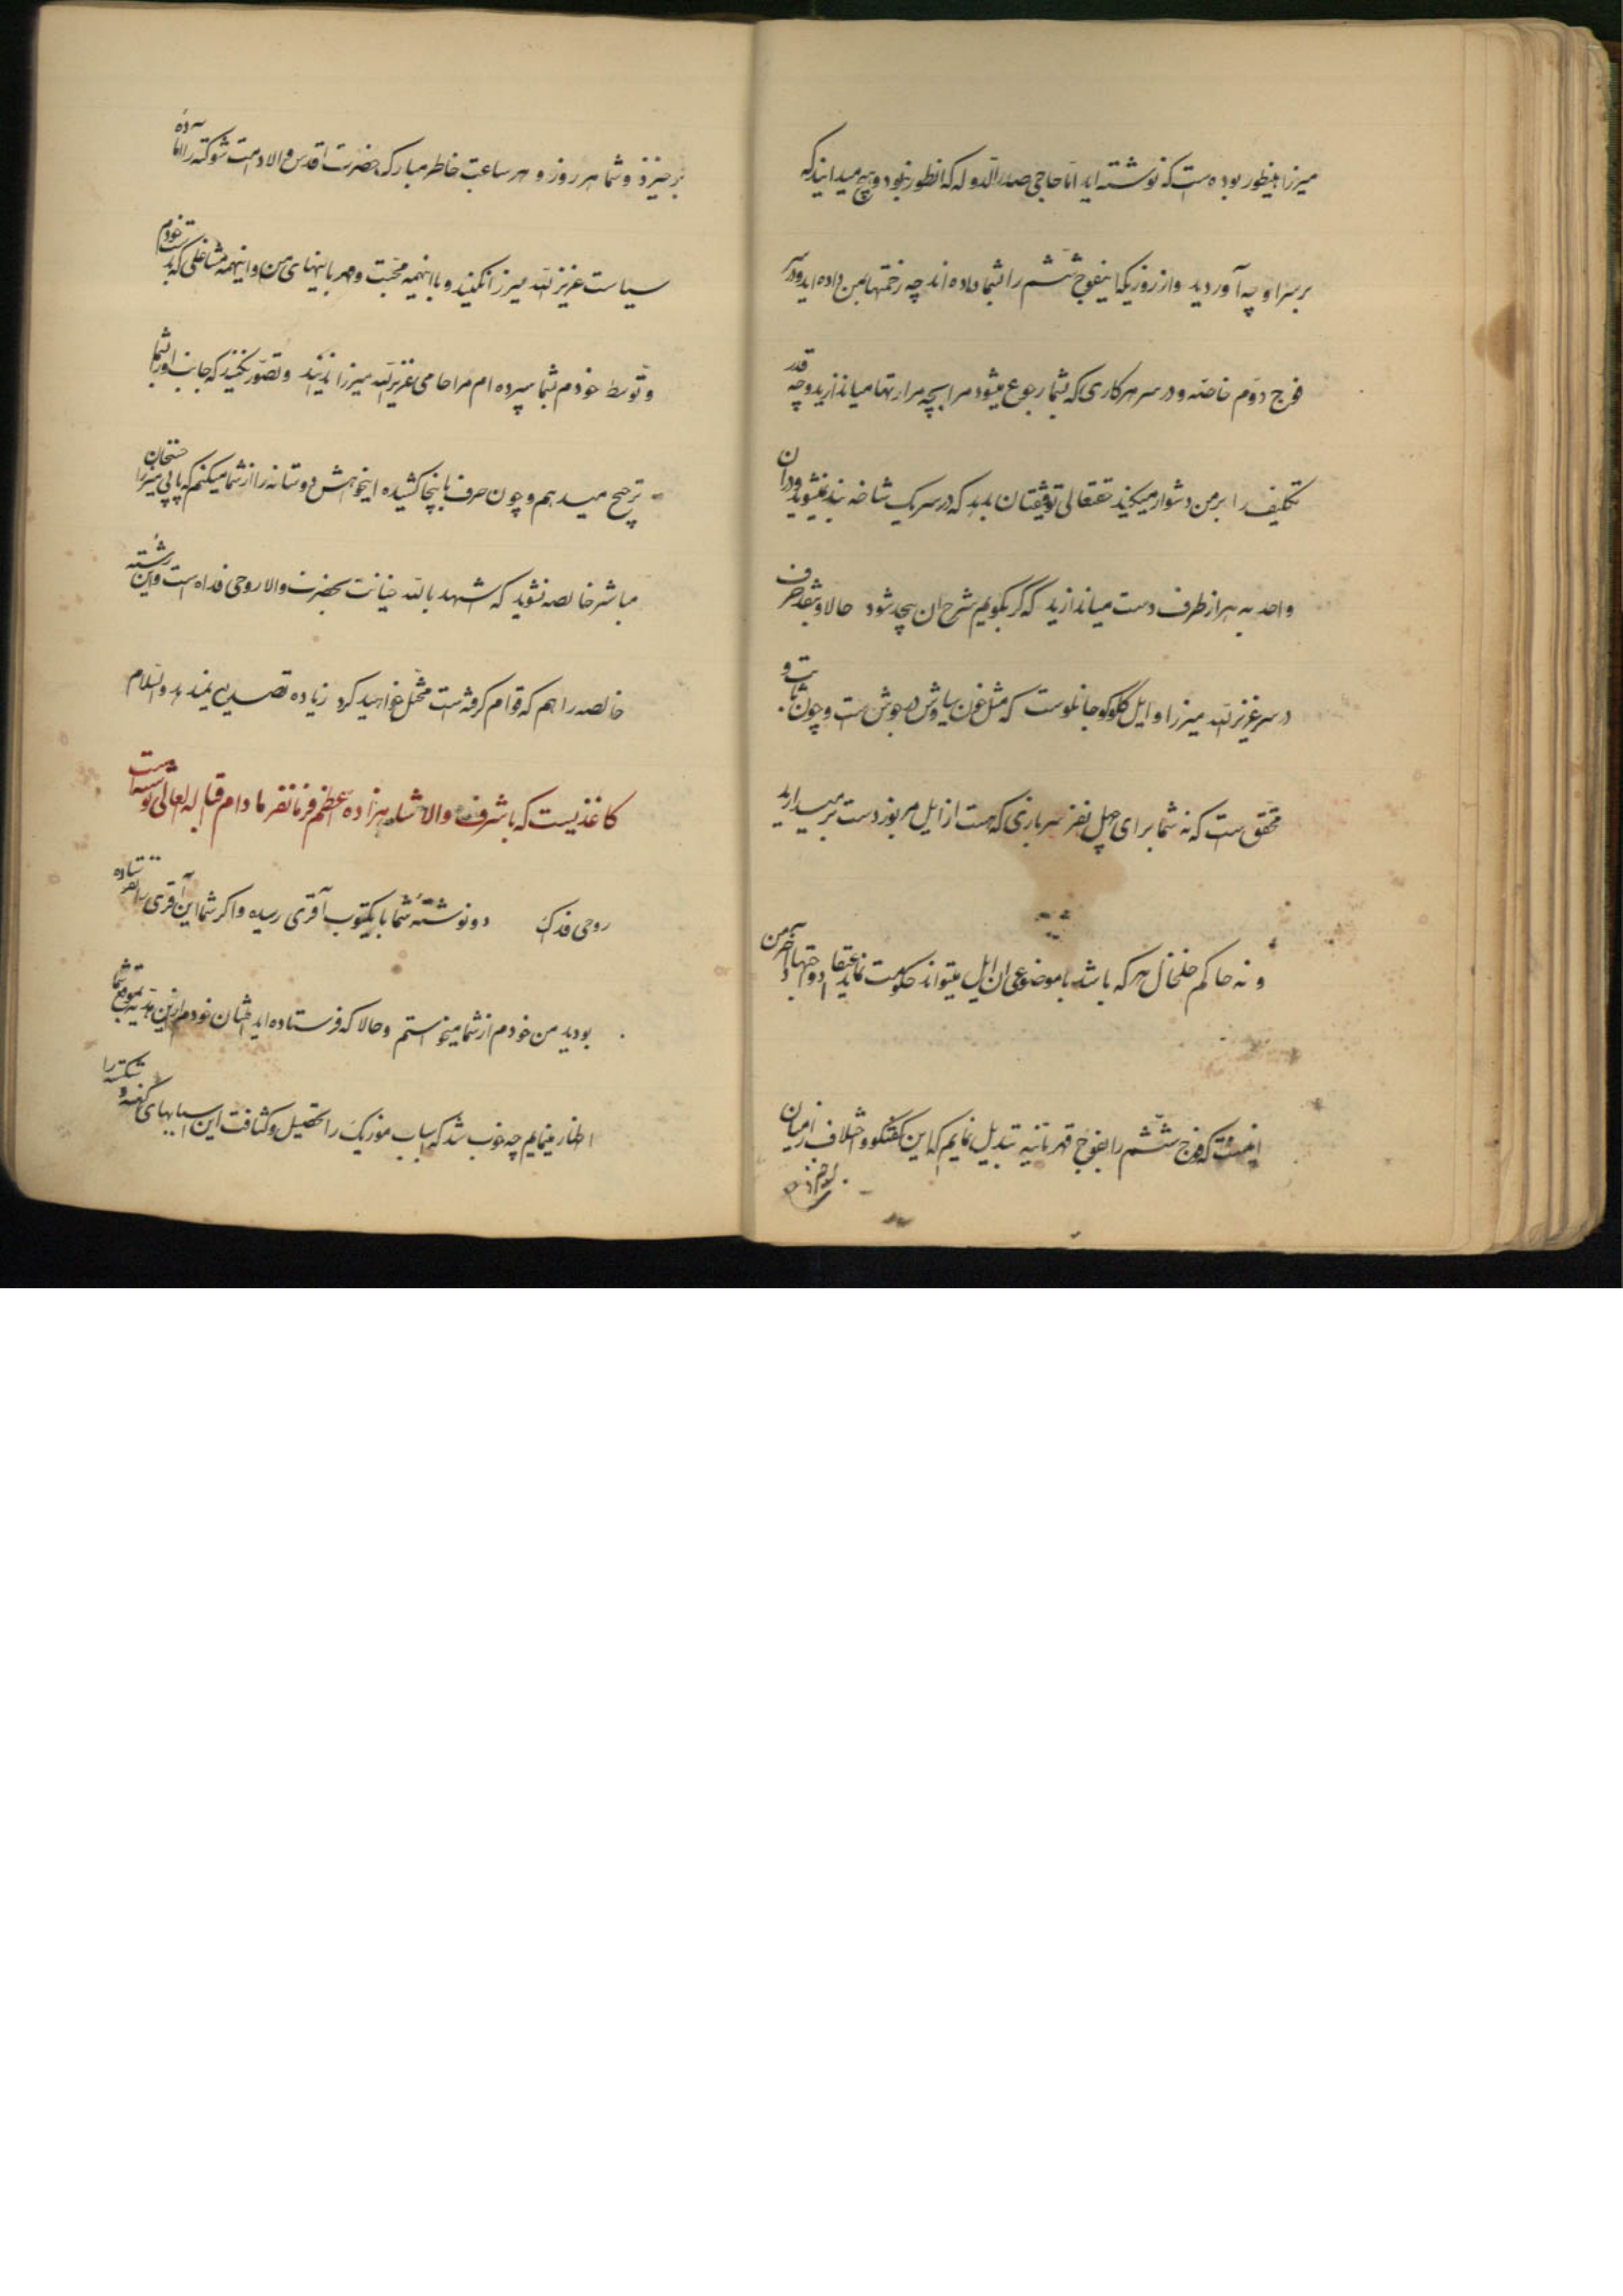 میرزا همینطور بوده است که نوشته اید اما حاجی صدرالدوله که انطور نبود و هیچ میدانید که
بر سر او چه آوردید و از روزیکه اینفوج ششم را بشما داده اند چه زحمتها بمن داده اید و در سر
فوج دوم خاصه و در سر هر کاری که بشما رجوع میشود مرا بچه مرارتها میاندازید و چه قدر
تکلیف را بر من دشوار میکنید حقتعالی توفیقتان بدهد که در سر یک شاخه بند نمیشوید و در آن
واحد به هزار طرف دست میاندازید که گر بگویم شرح آن بیحد شود حالا و بنقد حرف
در سر عزیزالله میرزا و ایل کلوکجانلوست که مثل خون سیاوش در جوش است و چون ثابت و
محقق است که نه شما برای چهل نفر سربازی که هست از ایل مزبور دست بر میدارید
و نه حاکم خلخال هر که باشد با موضوعی ان ایل میتواند حکومت نماید اعتقاد و اجتهاد آخر من
اینست که فوج ششم را بفوج قهرمانیه تبدیل نمایم که این گفتگو و اختلاف از میان
برخیزد و شما هر روز و هر ساعت خاطر مبارک حضرت اقدس والا دامت شوکته را آماده
سیاست عزیزالله میرزا نکنید و با اینهمه محبت و مهربانیهای من و اینهمه مشاغلی که بدست خودم
و توسط خودم بشما سپرده ام مرا حامی عزیزالله میرزا ندانید و تصور نکنید که جانب او را بشما
ترجیح میدهم و چون حرف باینجا کشیده اینخواهش دوستانه را از شما میکنم که پاپی میرزا حسنخان
مباشر خالصه نشوید که اشهد بالله خیانت بحضرت والا روحی فداه است و این رشته
خالصه را هم که قوام گرفته است مختل خواهید کرد زیاده تصدیع نمیدهد والسلام
کاغذیست که باشرف والا شاهزاده اعظم فرمانفرما دام اقباله العالی نوشته است
روحی فداک دو نوشته شما با یکتوب آقری رسید و اگر شما این آقری را نفرستاده
بودید من خودم از شما میخواستم و حالا که فرستاده اید امتنان خودم را ازین هدیه بموقع شما
اظهار مینمایم چه خوب شد که اسباب موزیک را تحصیل و کثافت این اسبابهای کهنه و شکسته را